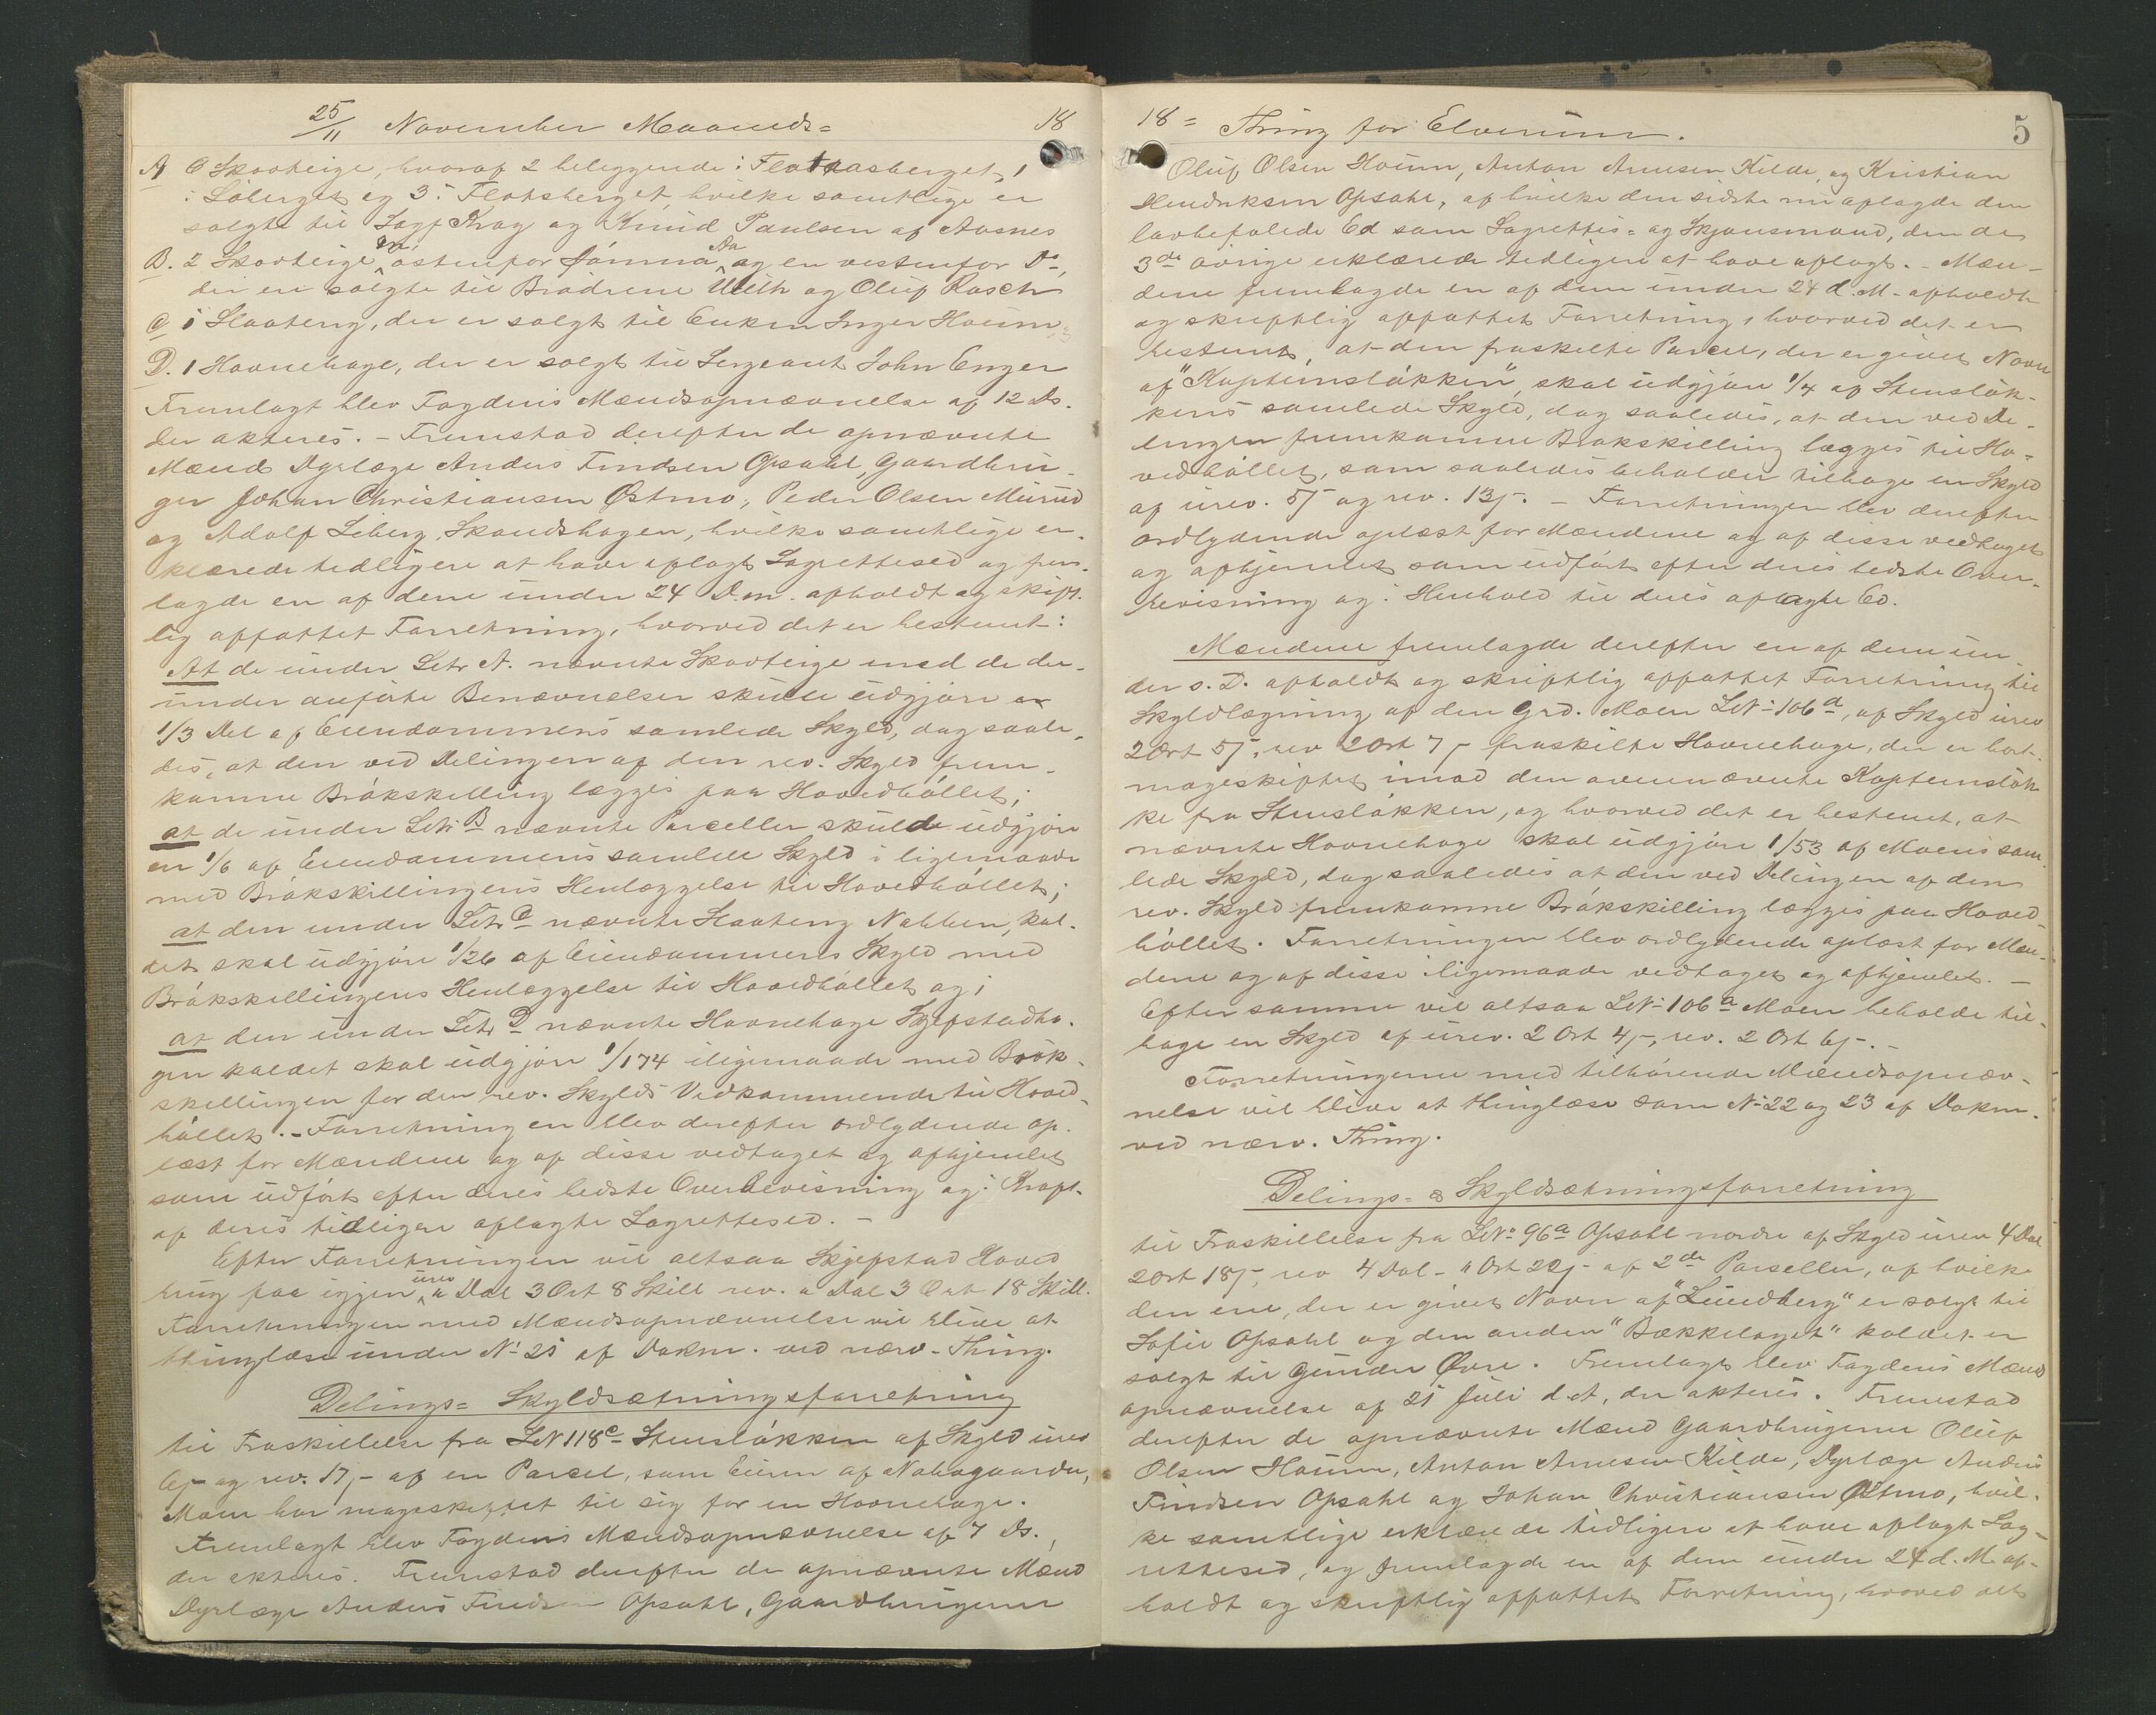 25/11 November Maaneds= 18
A 6 Skovteige, hvoraf 2 beliggende i Flataasberget, 1
i Løberget og 3 i Flatsberget, hvilke samtlige er
solgte til Sagf Krag og Knud Paulsen af Aasnes
B. 2 Skovteige en østenfor Jømna Aa og en vestenfor Do,
der ere solgte til Brødrene Uleth og Oluf Rasch
C 1 Slaateng, der er solgt til Enken Inger Houm
D. 1 Havnehage, der er solgt til Sergeant John Enger
Fremlagt blev Fogdens Mændsopnævnelse af 12 Ds.
der akteres. - Fremstod derefter de opnævnte
Mænd Dyrlæge Anders Findsen Opsahl, Gaardbru-
ger Johan Christiansen Østmo, Peder Olsen Murud
og Adolf Leberg, Skandshagen, hvilke samtlige er-
klærede tidligere at have aflagt Lagrettesed og frem-
lagde en af dem under 24 D.m. afholdt og skift-
lig affattet Forretning, hvorved det er bestemt:
At de under Litr A. nævnte Skovteige med de der-
under anførte Benævnelser skulle udgjøre en
1/3 Del af Eiendommens samlede Skyld, dog saale-
des, at den ved Delingen af den rev. Skyld frem-
komne Brøkskilling lægges paa Hovedbøllet;
at de under Litr B nævnte Parceller skulde udgjøre
en 1/6 af Eiendommens samlede Skyld i ligemaade
med Brøkskillingens Henlæggelse til Hovedbøllet;
at den under Litr C nævnte Slaateng Nabben, kal-
det skal udgjøre 1/26 af Eiendommens Skyld med
Brøkskillingens Henlæggelse til Hovedbøllet og;
at den under Litr D nævnte Havnehage Skjefstadha-
gen kaldet skal udgjøre 1/174 iligemaade med Brøk-
skillingen for den rev. Skylds Vedkommende til Hoved-
bøllet. - Forretningen blev derefter ordlydende op-
læst for Mændene og af disse vedtaget og afhjemlet
som udført efter deres bedste Overbevisning og i Kraft
af deres tidligere aflagte Lagrettesed. -
Efter Forretningen vil altsaa Skjefstad Hoved
brug faa igjen urev " Dal 3 Ort 8 Skill rev. " Dal 3 Ort 18 Skill.
Forretningen med Mændsopnævnelse vil blive at
thinglæse under No 21 af Dokm. ved nærv. Thing.
Delings= Skyldsætningsforretning
til Fraskillelse fra LN 118c Stensløkken af Skyld urev
6 ß og rev. 17 ß af en Parcel, som Eieren af Nabogaarden,
Moen har mageskiftet til sig for en Havnehage.
Fremlagt blev Fogdens Mændsopnævnelse af 7 Ds.,
der akteres. Fremstod derefter de opnævnte Mænd
Dyrlæge Anders Findsen Opsahl, Gaardbrugerne
18= Thing for Elverum. 5
Oluf Olsen Houm, Anton Arnesen Kilde, og Kristian
Hendriksen Opsahl, af hvilke den sidste nu aflagde den
lovbefalede Ed som Lagrettes= og Skjønsmand, den de
3de øvrige erklærede tidligere at have aflagt. - Mæn-
dene fremlagde en af dem under 24 d.M. afholdt
og skriftlig affattet Forretning, hvorved det er
bestemt, at den fraskilte Parcel, der er givet Navn
af "Kapteinsløkken", skal udgjøre 1/4 af Stensløk-
kens samlede Skyld, dog saaledes, at den ved De-
lingen fremkomne Brøkskilling lægges til Ho-
vedbøllet, som saaledes beholder tilbage en Skyld
af urev. 5 ß og rev. 13 ß. - Forretningen blev derefter
ordlydende oplæst for Mændene og af disse vedtaget
og afhjemlet som udført efter deres bedste Over-
bevisning og i Henhold til deres aflagte Ed.
Mændene fremlagde derefter en af dem un-
der s. D. afholdt og skriftlig affattet Forretning til
Skyldlægning af den Grd. Moen LN 106a, af Skyld urev
2 Ort 5 ß, rev 2 Ort 7 ß fraskilte Havnehage, der er bort-
mageskiftet imod den ovennævnte Kapteinsløk-
ke fra Stensløkken, og hvorved det er bestemt, at
nævnte Havnehage skal udgjøre 1/53 af Moens sam-
lede Skyld, dog saaledes at den ved Delingen af den
rev. Skyld fremkomne Brøkskilling lægges paa Hoved
bøllet. Forretningen blev ordlydende oplæst for Mæn-
dene og af disse iligemaade vedtaget og afhjemlet. -
Efter samme vil altsaa LN 106a Moen beholde til-
bage en Skyld af urev. 2 Ort 4 ß, rev. 2 Ort 6 ß. -
Forretningerne med tilhørende Mændsopnæv-
nelse vil blive at thinglæse som No 22 og 23 af Dokm.
ved nærv. Thing.
Delings= & Skyldsætningsforretning
til Fraskillelse fra LNo 96a Opsahl nordre af Skyld urev 4 Dal
2 Ort 18 ß, rev 4 Dal - " Ort 22 ß af 2de Parseller, af hvilke
den ene, der er givet Navn af "Lundberg" er solgt til
Sofie Opsahl og den anden "Bækkelaget" kaldet er
solgt til Gunder Øvre. Fremlagt blev Fogdens Mænds
opnævnelse af 21 Juli d. A, der akteres. Fremstod
derefter de opnævnte Mænd Gaardbrugerne Oluf
Olsen Houm, Anton Arnesen Kilde, Dyrlæge Anders
Findsen Opsahl og Johan Christiansen Østmo, hvil-
ke samtlige erklærede tidligere at have aflagt Lag-
rettesed, og fremlagde en af dem under 24 d. M. af-
holdt og skriftlig affattet Forretning, hvorved det